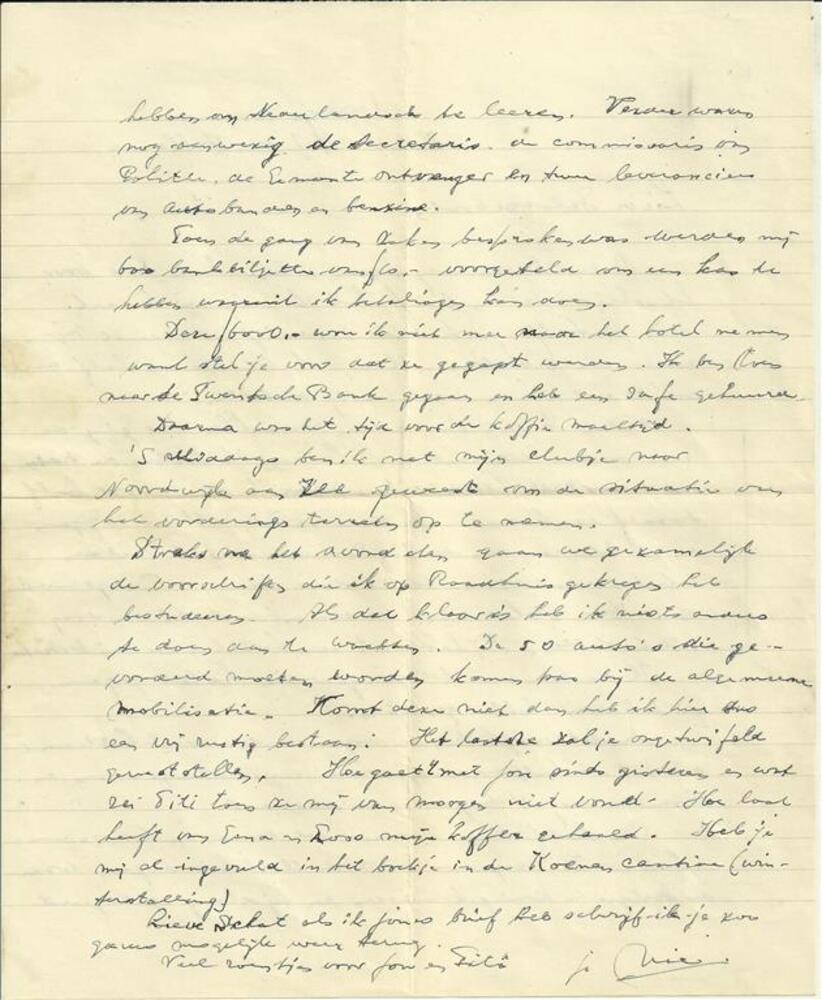 hebben om Nederlandsch te leeren. Verder waren
nog aanwezig de secretaris de commissaris van
Politie, de Gemeente ontvanger en twee leveranciers
van autobanden en benzine.
Toen de gang van zaken besproken was werden mij
600 bankbiljetten van ƒ10,- voorgeteld om een kas te
hebben waaruit ik betalingen kan doen.
Deze ƒ6000,- wou ik niet mee naar het hotel nemen
want stel je voor dat ze gegapt worden. Ik ben
naar de Twentsche Bank gegaan en heb een safe gehuurd.
Daarna was het tijd voor de koffie maaltijd.
'S Middags ben ik met mijn clubje naar
Noordwijk aan Zee geweest om de situatie van
het vorderings terrein op te nemen.
Straks na het avond eten gaan we gezamelijk
de voorschriften die ik op Raadhuis gekregen heb
bestudeeren. Als dat klaar is heb ik niets anders
te doen dan te wachten. De 50 auto's die ge-
vorderd moeten worden komen pas bij de algemeene
mobilisatie. Komt deze niet dan heb ik hier dus
een vrij rustig bestaan! Het laatste zal je ongetwijfeld
geruststellen. Hoe gaat 't met jou sinds gisteren en wat
zei Titi toen ze mij van morgen niet vond. Hoe laat
heeft mijn koffer gehaald. Heb je
mij al ingevuld in het boekje in de cantine (win-
terstalling)
Lieve Schat als ik jouw brief heb schrijf ik je zoo
gauw mogelijk weer terug.
Veel zoentjes voor jou en Titi je